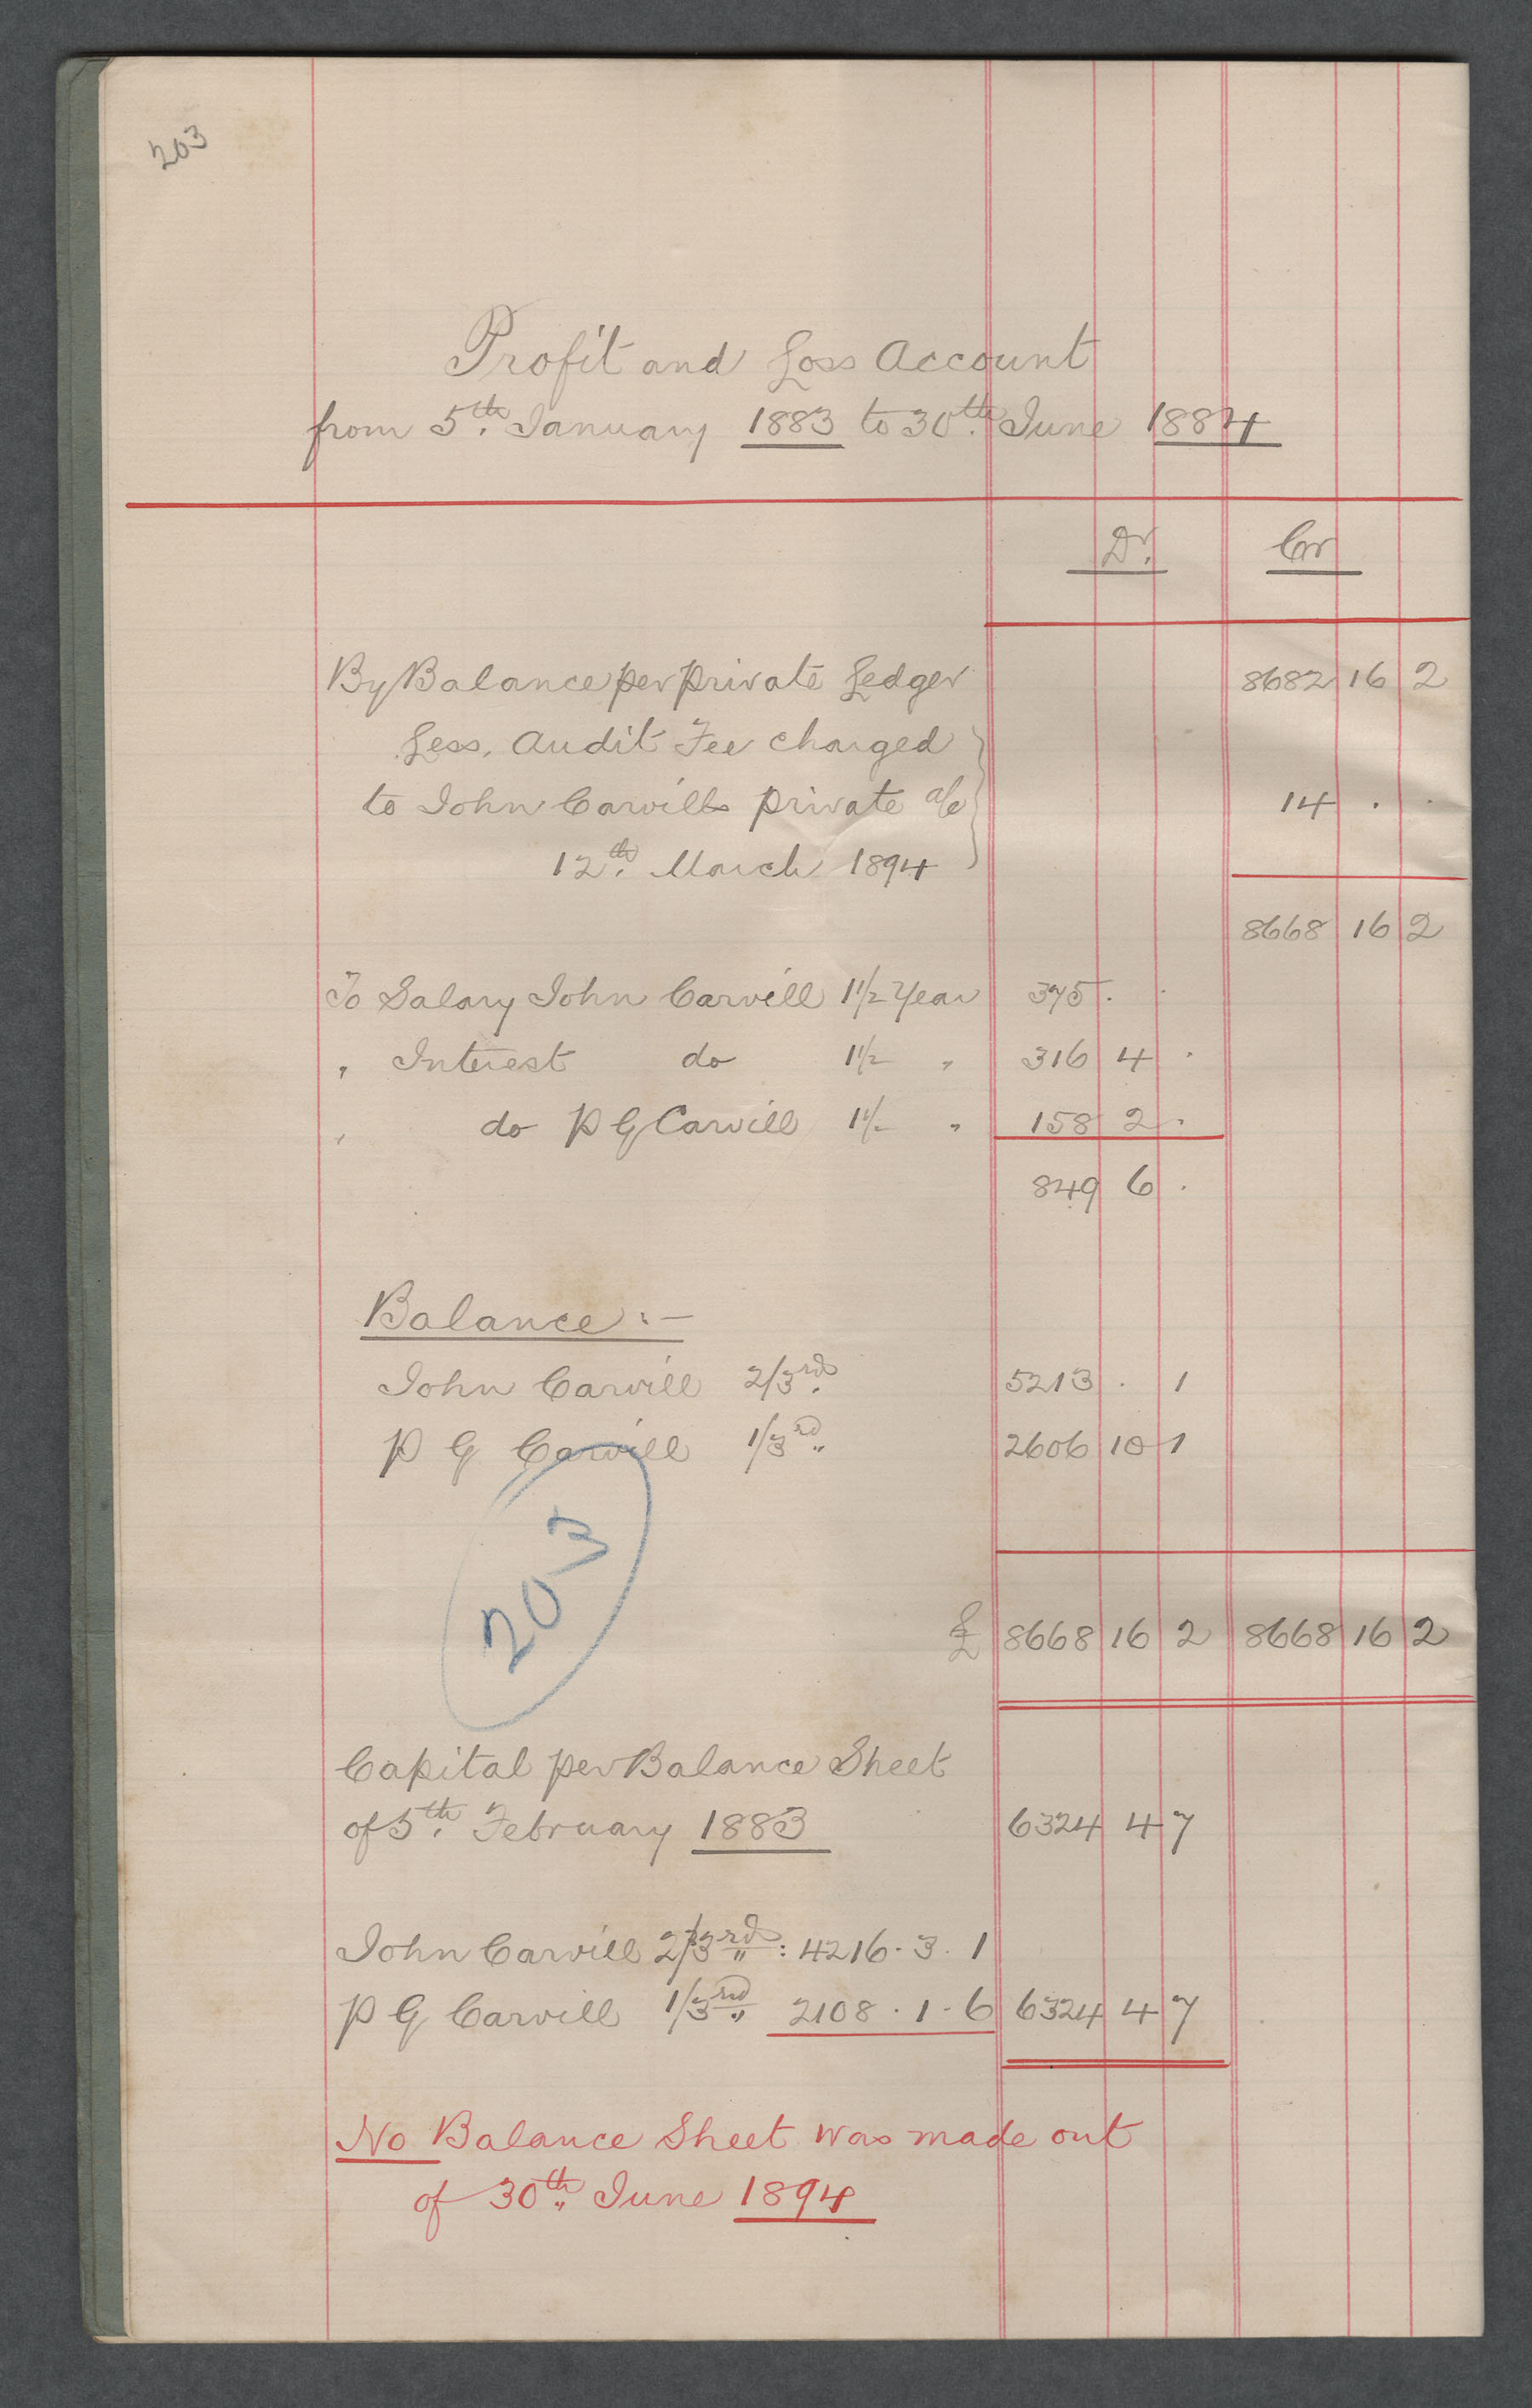 203
Profit and Loss Account
from 5th. January 1883 to 30th. June 1884
Dr. Cr
By Balance per private Ledger 8682 16 2
Less, Audit Fee charged
to John Carvills private a/c 14 . .
12th. March 1894
8668 16 2
To Salary John Carvill 1 1/2 Year 375 . .
" Interest do 1 1/2 " 316 4 .
" do P G Carvill 1 1/2 " 158 2 .
849 6 .
Balance :-
John Carvill 2/3rds. 5213 . 1
P G Carvill 1/3rd 2606 10 1
203
£ 8668 16 2 8668 16 2
Capital per Balance Sheet
of 5th. February 1883 6324 4 7
John Carvill 2/3rds : 4216 . 3 . 1
P G Carvill 1/3rd 2108 . 1 - 6 6324 4 7
No Balance Sheet was made out
of 30th June 1894